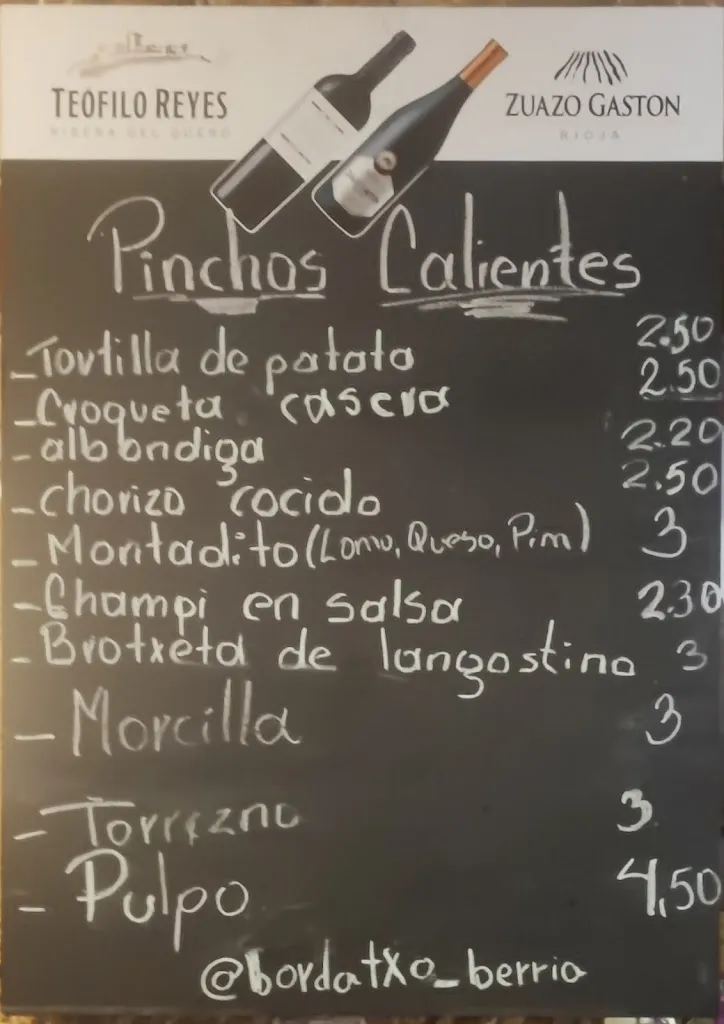 TEÓFILO REYES
RIBERA DEL DUERO
ZUAZO GASTON
RIOJA
Pinchos Calientes
- Tortilla de patata 2.50
- Croqueta casera 2.50
- albondiga 2.20
- chorizo cocido 2.50
- Montadito (Lomo, Queso, Pim) 3
- Champi en salsa 2.30
- Brotxeta de langostino 3
- Morcilla 3
- Torrezno 3
- Pulpo 4,50
@bordatxo_berria